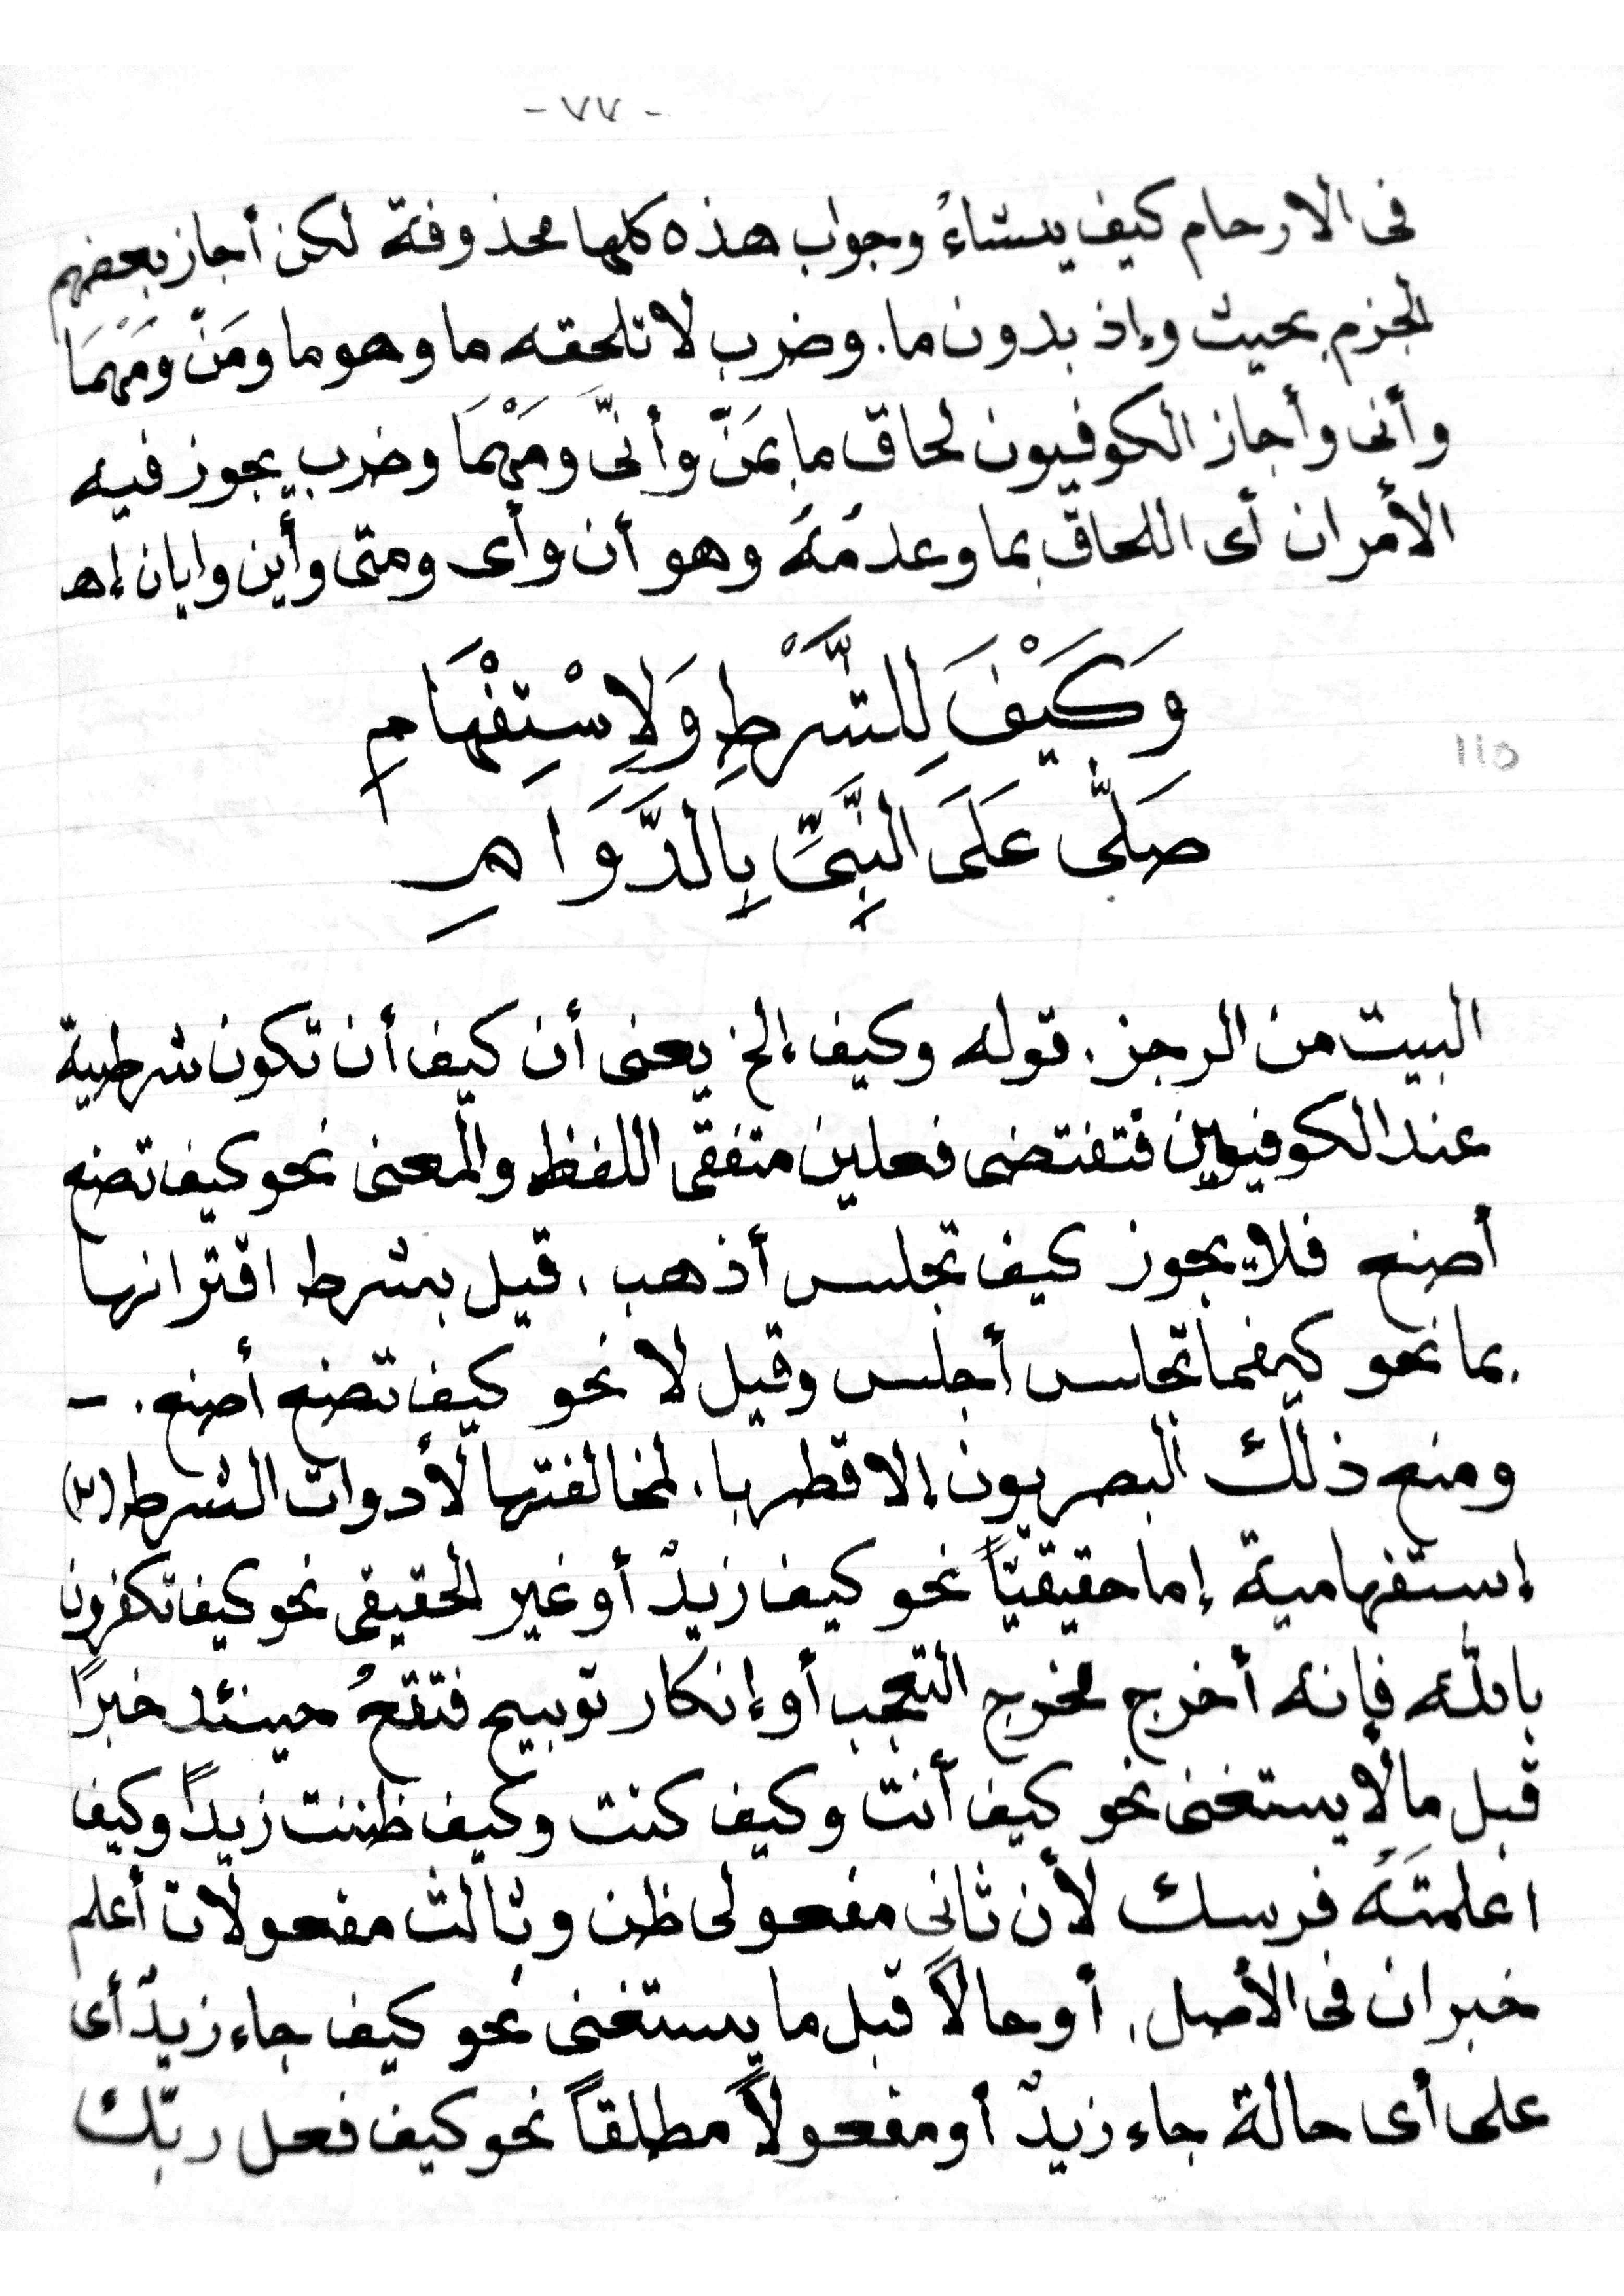 - ٧٧ -
فى الارحام كيف يشاءُ وجواب هذه كلها محذوفة لكن أجاز بعضهم
الجزم بحيث وإذ بدون ما. وضرب لا تلحقه ما وهو ما ومَنْ ومَهْمَا
وأنى وأجاز الكوفيون لحاق ما بمَنْ وأنّى ومَهْمَا وضرب يجوز فيه
الأمران أى اللحاق بما وعدمُهُ وهو أن وأى ومتى وأين وايان إھ
وَكَيْفَ لِلشَّرْطِ وَلِاسْتِفْهَامِ
١١٥
صَلَّى عَلَى النَّبِىِّ بِالدَّوَامِ
البيت من الرجز. قوله وكيف إلخ يعنى أن كيف أن تكون شرطية
عند الكوفيين فتقتضى فعلين متفقى اللفظ والمعنى نحو كيف تصنع
أصنع فلا يجوز كيف تجلس أذهب، قيل بشرط اقترانها
بما نحو كيفما تجلس أجلس وقيل لا نحو كيف تصنع أصنع. -
ومنع ذلك البصريون إلا قطربا. لمخالفتها لأدوات الشرط (٢)
إستفهامية إما حقيقيّاً نحو كيف زيدٌ أو غير الحقيقى نحو كيف تكفرون
بالله فإنه أخرج مخرج التعجب أو إنكار توبيح فتقعُ حينئد خبرًا
قبل مالا يستغنى نحو كيف أنت وكيف كنت وكيف ظننت زيداً وكيف
اعلمتَهُ فرسك لأن ثانى مفعولى ظن وثالث مفعولات أعلم
خبران فى الأصل. أو حالاً قبل ما يستغنى نحو كيف جاء زيدٌ أى
على أى حالة جاء زيدٌ أو مفعولاً مطلقاً نحو كيف فعل ربّك